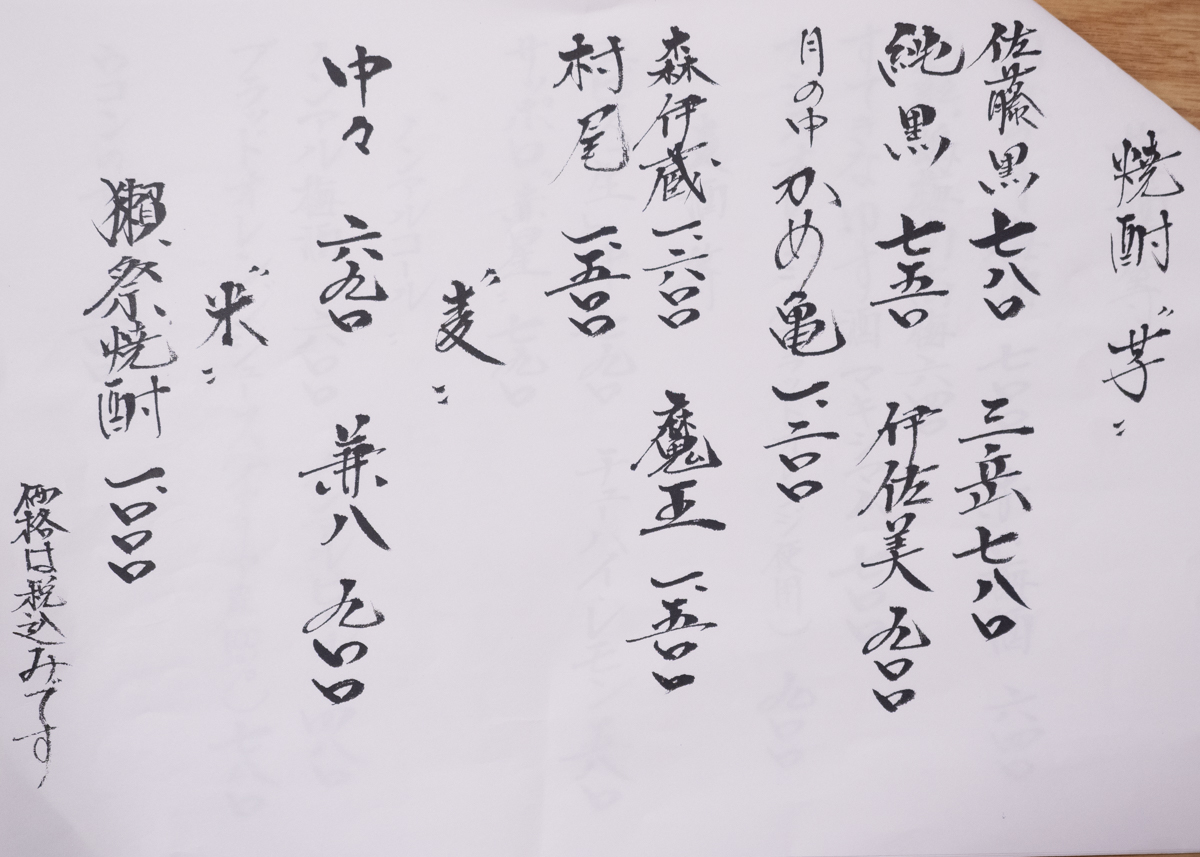 焼酎 〝芋〟
佐藤黒 七八〇 三岳 七八〇
純黒 七五〇 伊佐美 九〇〇
月の中 かめ亀 一、二〇〇
森伊蔵 一、六〇〇 魔王 一、五〇〇
村尾 一、五〇〇
〝麦〟
中々 六九〇 兼八 九〇〇
〝米〟
獺祭焼酎 一、〇〇〇
価格は税込みです